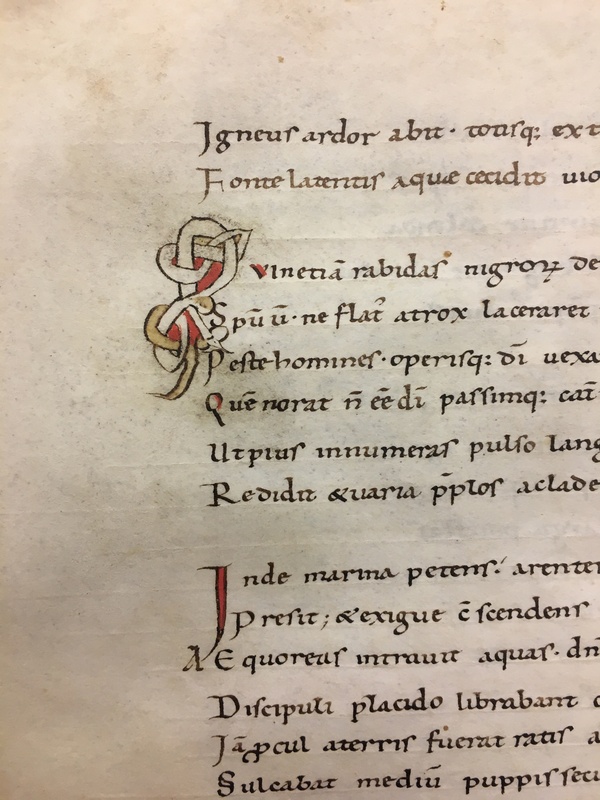 Igneus ardor abit· totisq; ext
Fonte latentis aquæ cecidit uio
Quinetiā rabidas nigroꝝ de
Spūū· ne flat᷒ atrox laceraret
Peste homines· operisq; dī uexa
Quē norat n̄ eē dī passimq; cat̄
Ut pius innumeras pulso lang
Redidit &uaria pp̄los aclade
Inde marina petens· arenten
Presit; & exigue c̄scendens
Aequoreas intrauit aquas· dn̄
Discipuli placido librabant
Iā ꝓcul aterris fuerat ratis a
Sulcabat mediū puppis secu